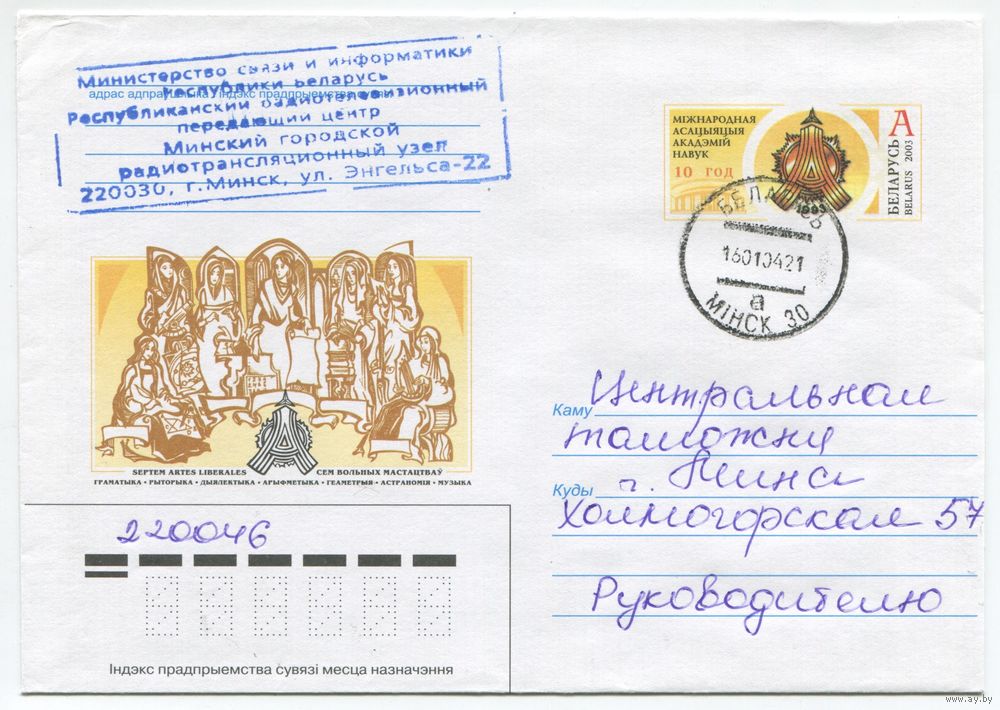 Министерство связи и информатики
Республики Беларусь
адрас адпраўшчыка, індэкс прадпрыемства сувязі
Республиканский радиотелевизионный
передающий центр
Минский городской
радиотрансляционный узел
220030, г.Минск, ул. Энгельса-22
МІЖНАРОДНАЯ
АСАЦЫЯЦЫЯ
АКАДЭМІЙ
НАВУК
10 ГОД
1993
А
БЕЛАРУСЬ
BELARUS 2003
БЕЛАРУСЬ
16010421
а
МІНСК 30
SEPTEM ARTES LIBERALES
СЕМ ВОЛЬНЫХ МАСТАЦТВАЎ
ГРАМАТЫКА • РЫТОРЫКА • ДЫЯЛЕКТЫКА • АРЫФМЕТЫКА • ГЕАМЕТРЫЯ • АСТРАНОМІЯ • МУЗЫКА
Каму Центральная
таможня
Куды г. Минск
Холмогорская 57
Руководителю
220046
Індэкс прадпрыемства сувязі месца назначэння
www.ay.by